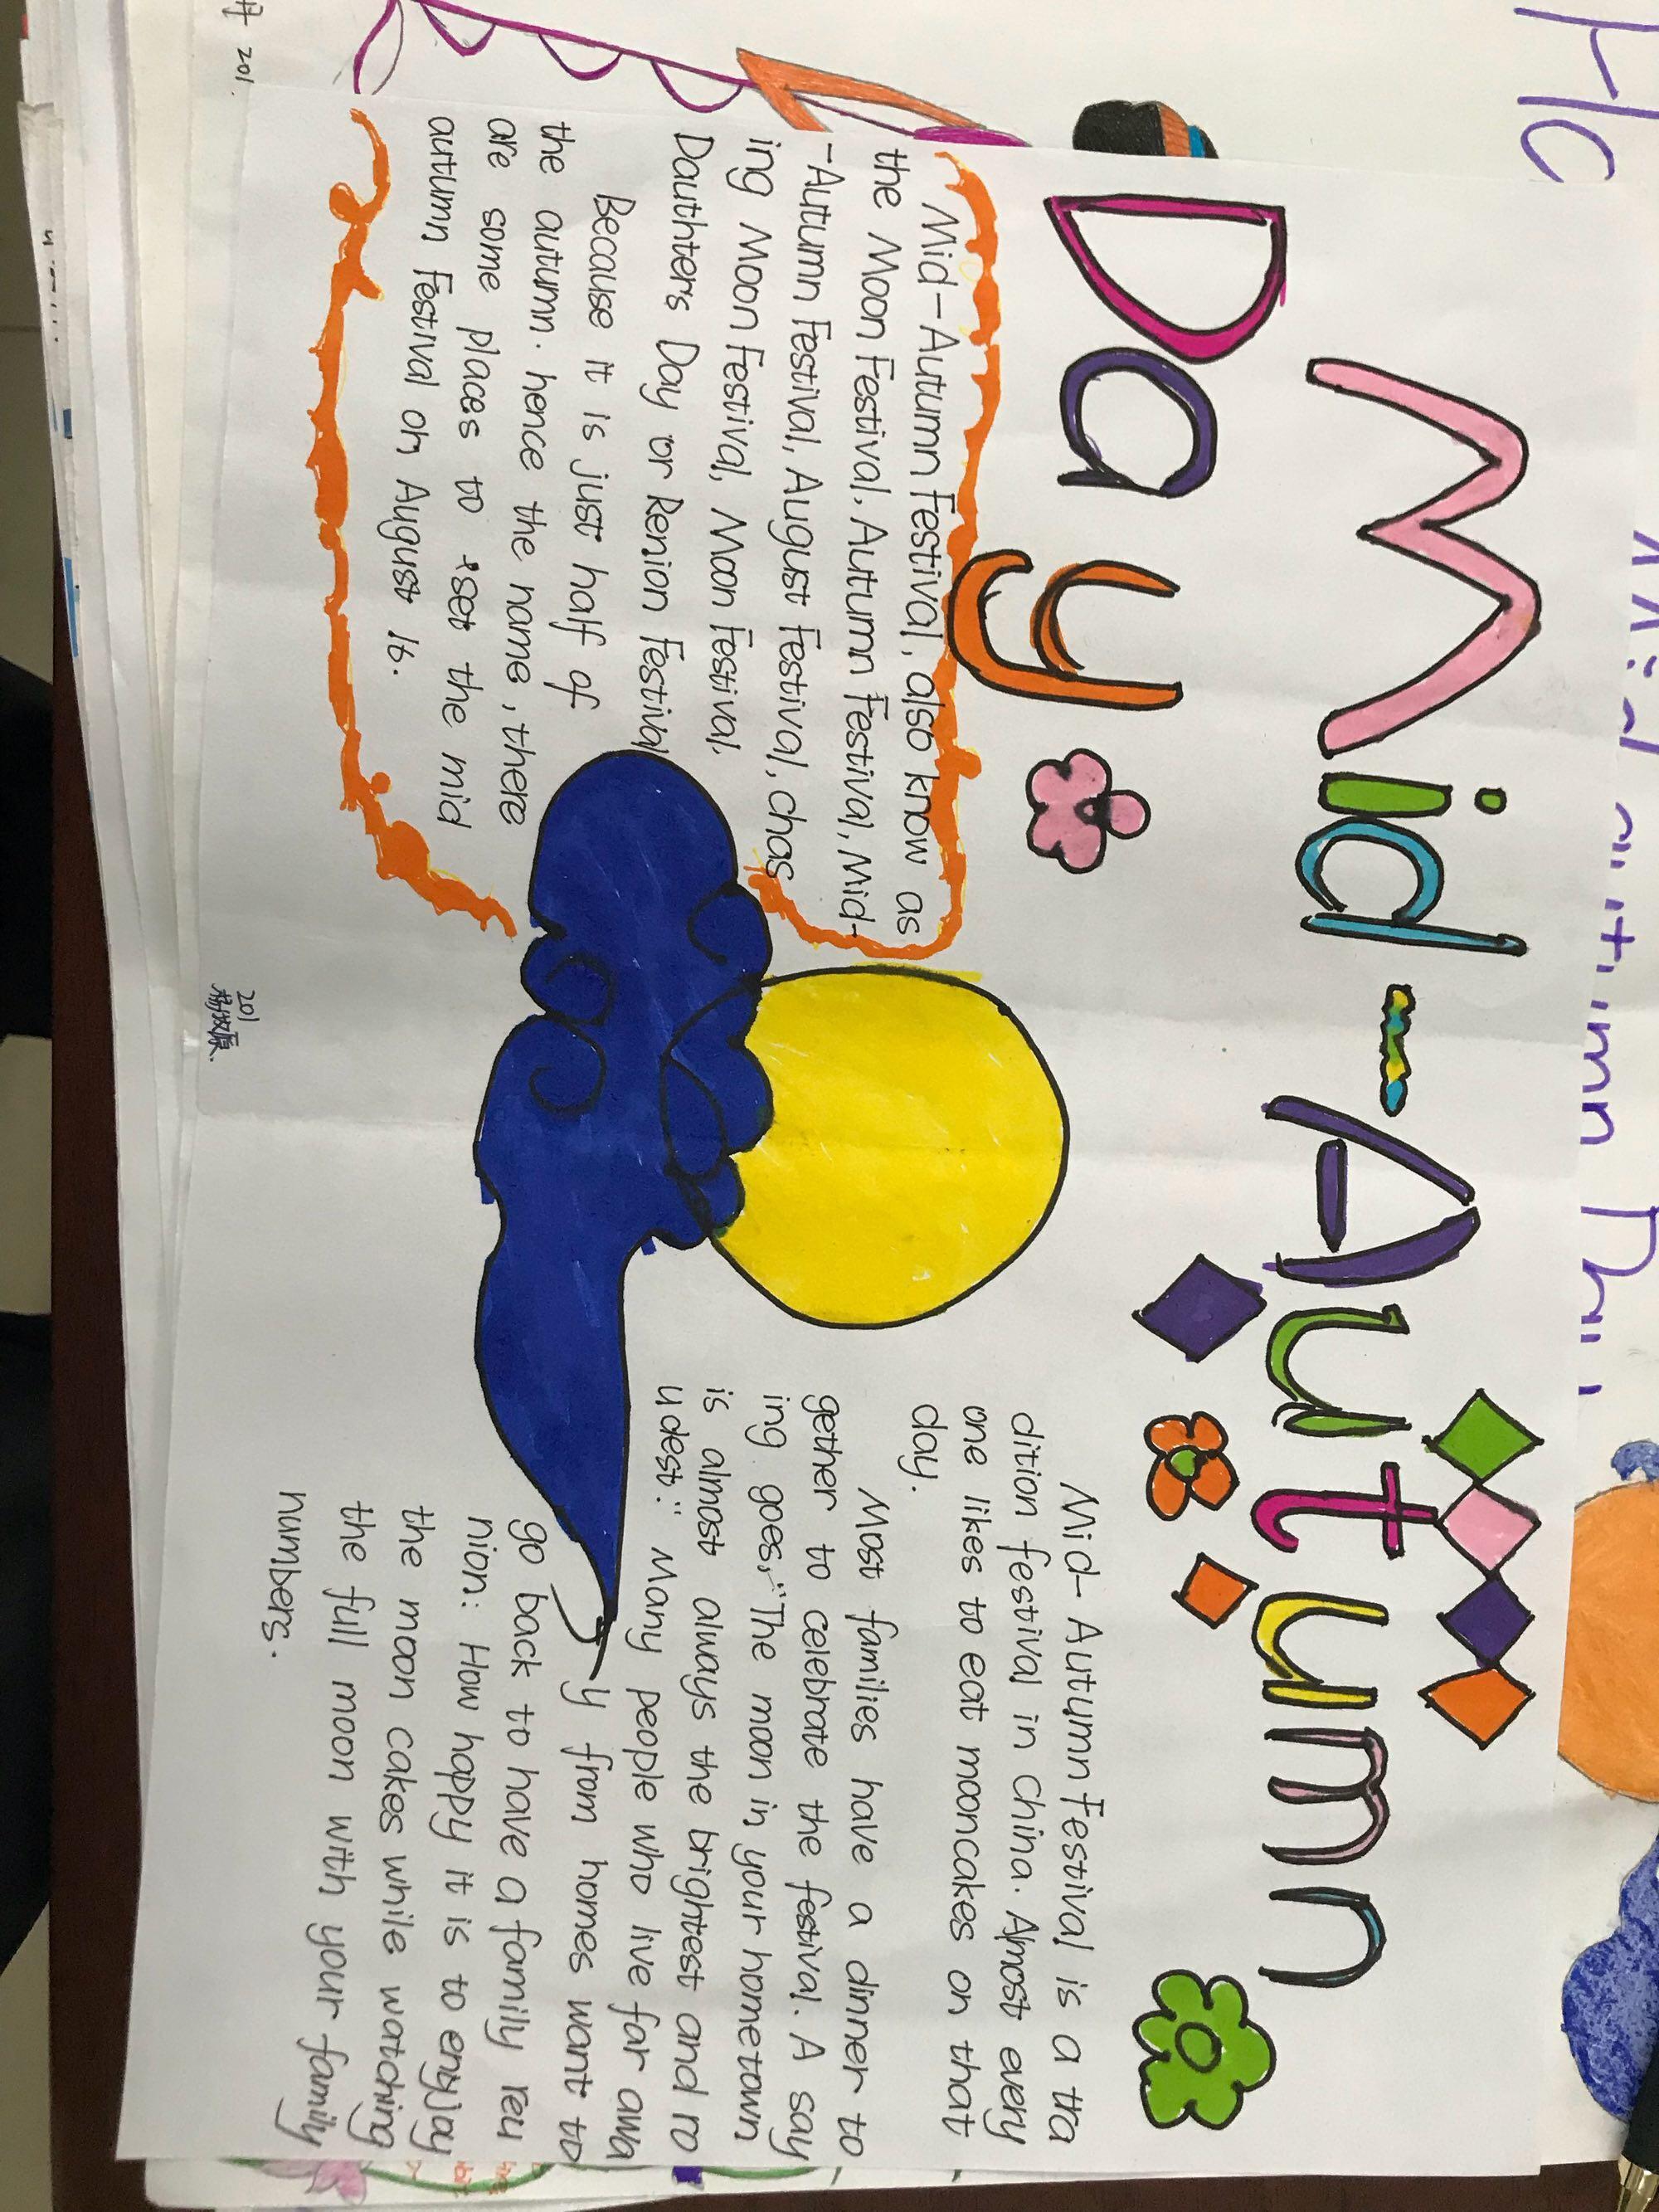 Mid-Autumn
Day
Mid-Autumn Festival, also know as
the Moon Festival, Autumn Festival, Mid-
-Autumn Festival, August Festival, chas
ing Moon Festival, Moon Festival,
Dauthters Day or Renion Festival
Because it is just half of
the autumn. hence the name, there
are some places to set the mid
autumn Festival on August 16.
Mid-Autumn Festival is a tra
dition festival in China. Almost every
one likes to eat mooncakes on that
day.
Most families have a dinner to
gether to celebrate the festival. A say
ing goes, "The moon in your hometown
is almost always the brightest and ro
udest". Many people who live far awa
y from homes want to
go back to have a family reu
nion: How happy it is to enjoy
the moon cakes while watching
the full moon with your family
numbers.
201
201